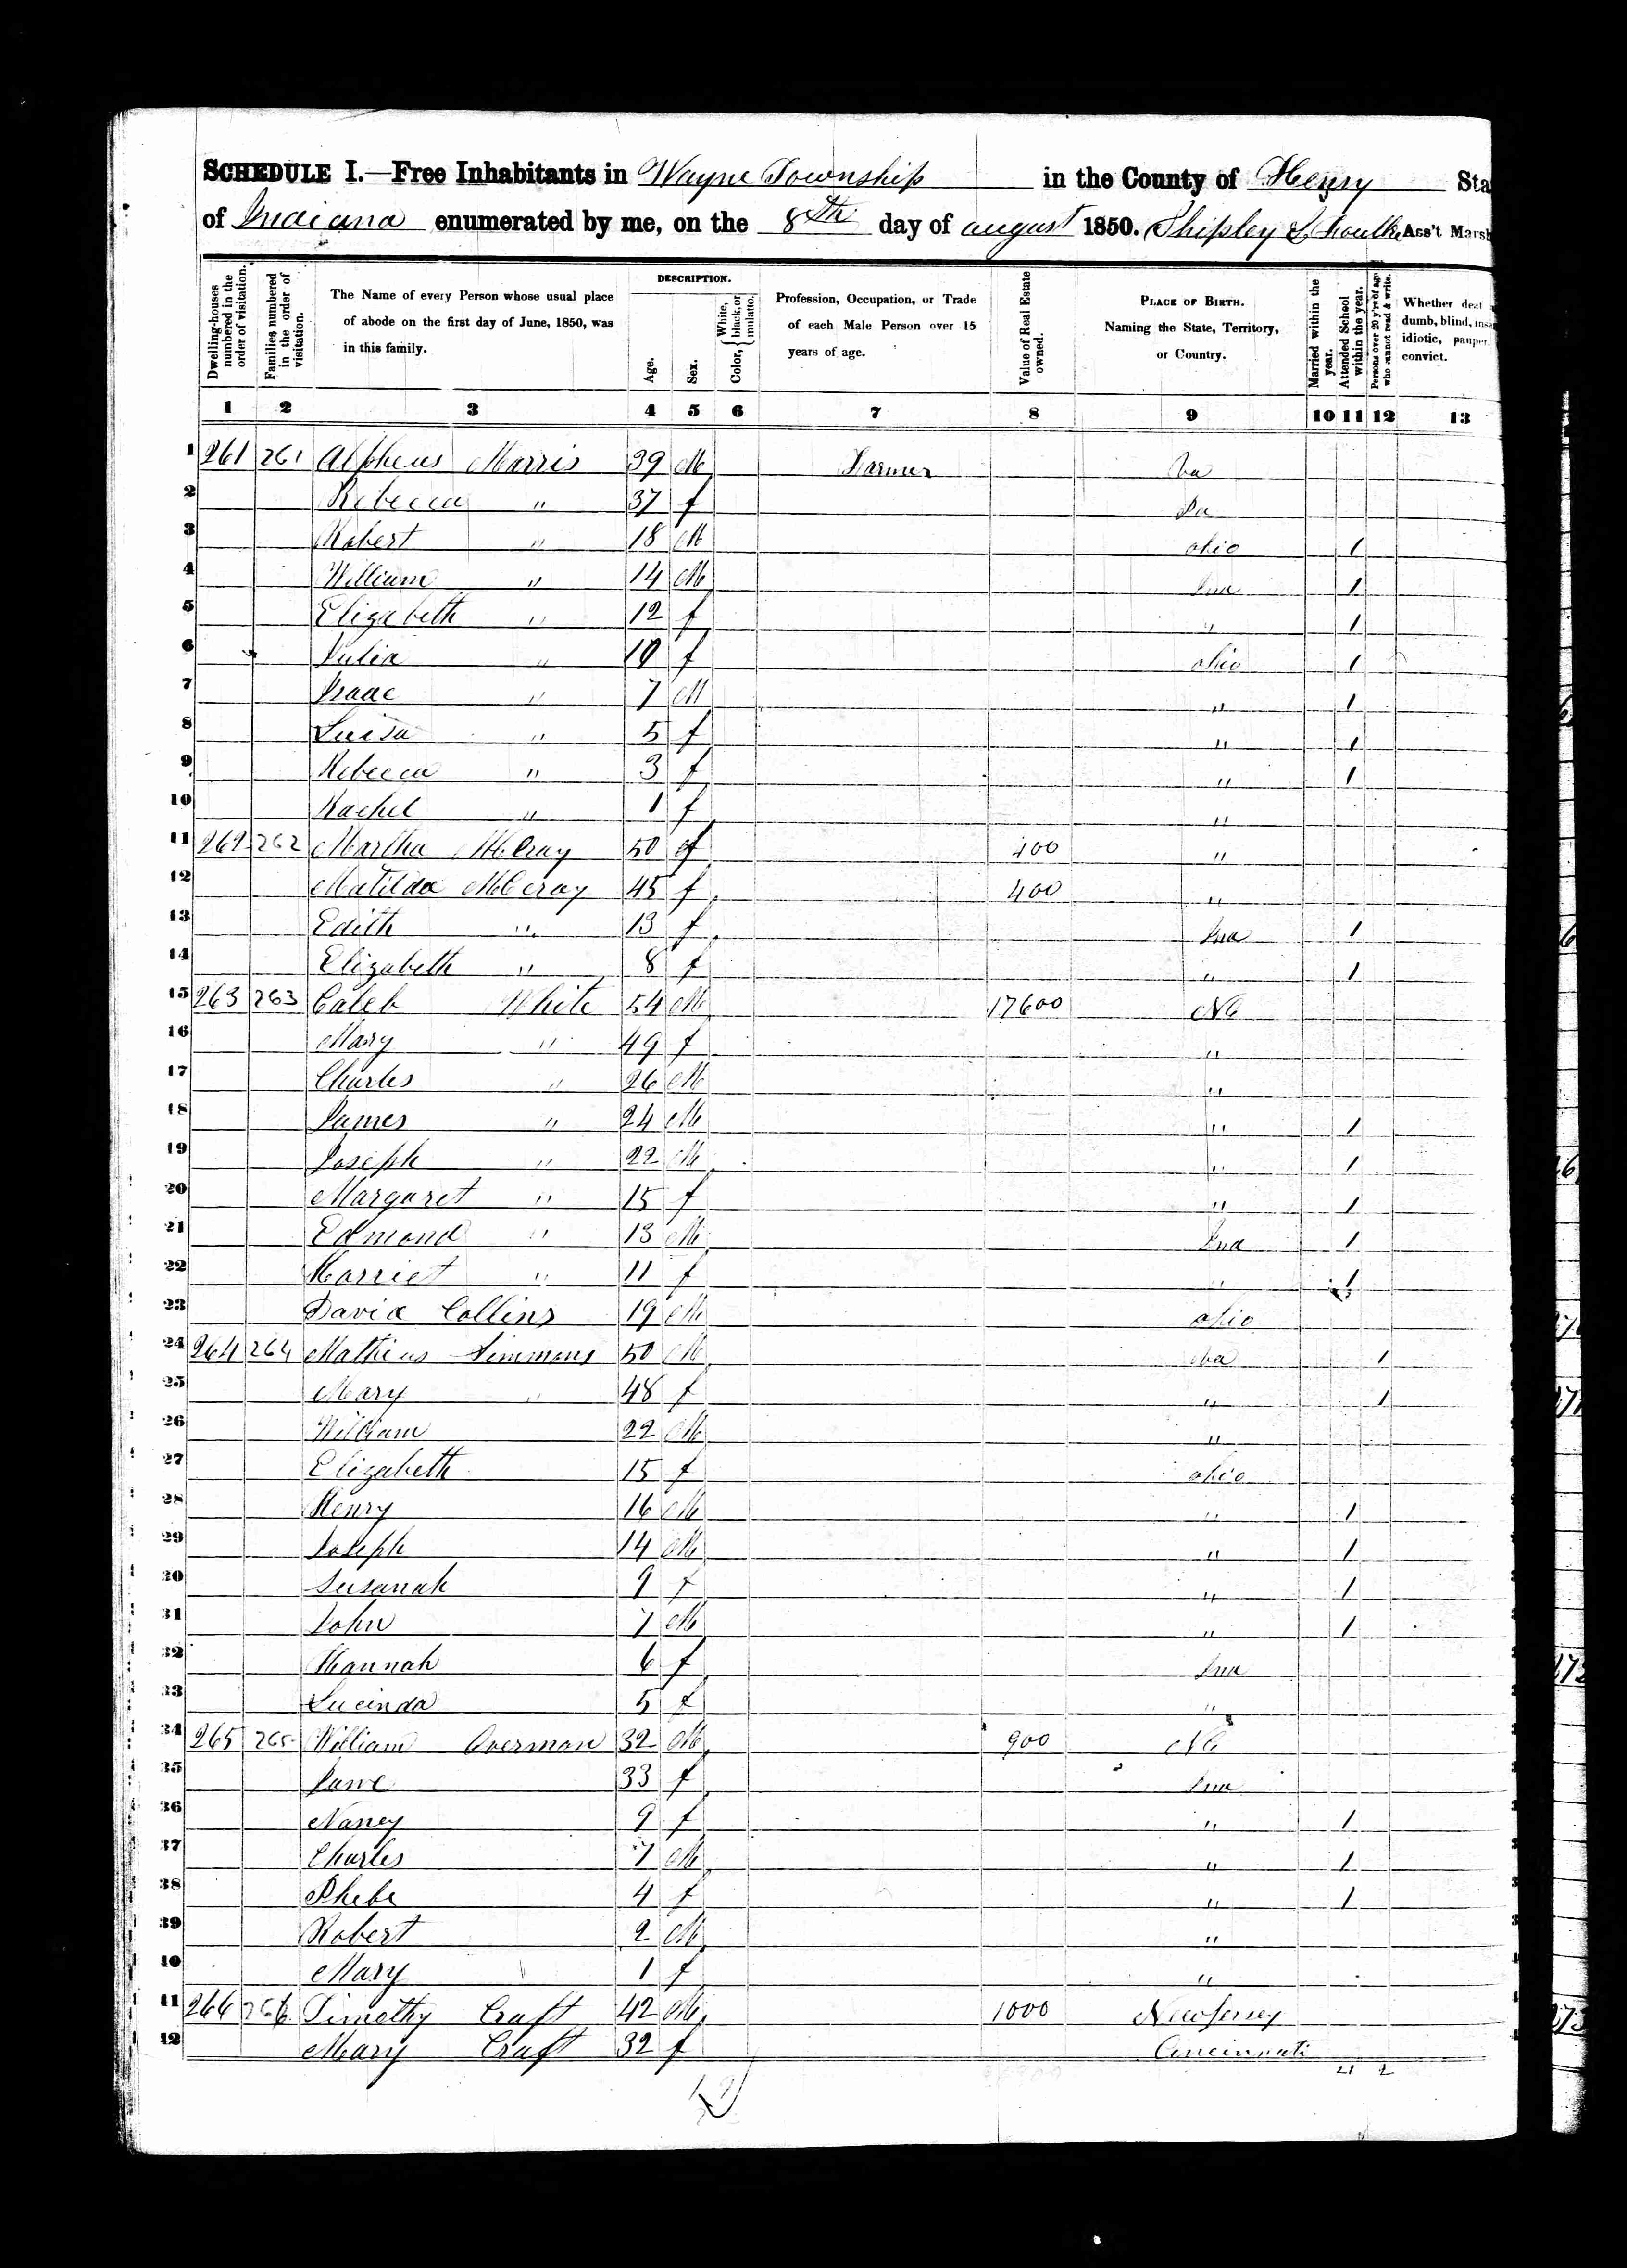 SCHEDULE I.—Free Inhabitants in Wayne Township in the County of Henry Sta
of Indiana enumerated by me, on the 8th day of august 1850. Shipley Ass't Marsh
Dwelling-houses numbered in the order of visitation.
Families numbered in the order of visitation.
The Name of every Person whose usual place of abode on the first day of June, 1850, was in this family.
DESCRIPTION.
Age.
Sex.
Color, White, black, or mulatto.
Profession, Occupation, or Trade of each Male Person over 15 years of age.
Value of Real Estate owned.
PLACE OF BIRTH. Naming the State, Territory, or Country.
Married within the year.
Attended School within the year.
Persons over 20 y'rs of age who cannot read & write.
Whether deaf dumb, blind, insa idiotic, pauper convict.
1 2 3 4 5 6 7 8 9 10 11 12 13
1 261 261 Alpheus Morris 39 M Farmer Va
2 Rebecca " 37 f Pa
3 Robert " 18 M ohio 1
4 William " 14 M Ina 1
5 Elizabeth " 12 f " 1
6 Julia " 10 f ohio 1
7 Isaac " 7 M " 1
8 Luisa " 5 f " 1
9 Rebecca " 3 f " 1
10 Rachel " 1 f "
11 262 262 Martha McCray 50 f 400 "
12 Matilda McCray 45 f 400 "
13 Edith " 13 f Ina 1
14 Elizabeth " 8 f " 1
15 263 263 Caleb White 54 M 17600 NC
16 Mary " 49 f "
17 Charles " 26 M "
18 James " 24 M " 1
19 Joseph " 22 M " 1
20 Margaret " 15 f " 1
21 Edmond " 13 M Ind 1
22 Harriet " 11 f " 1
23 David Collins 19 M ohio
24 264 264 Mathias Simmons 50 M Va 1
25 Mary " 48 f " 1
26 William 22 M "
27 Elizabeth 15 f ohio
28 Henry 16 M " 1
29 Joseph 14 M " 1
30 Susanah 9 f " 1
31 John 7 M " 1
32 Hannah 6 f Ina
33 Lucinda 5 f "
34 265 265 William Overman 32 M 900 NC
35 Jane 33 f Ina
36 Nancy 9 f " 1
37 Charles 7 M " 1
38 Phebe 4 f " 1
39 Robert 2 M "
40 Mary 1 f "
41 266 266 Timothy Craft 42 M 1000 New Jersey
42 Mary Craft 32 f Cincinnati
21 2